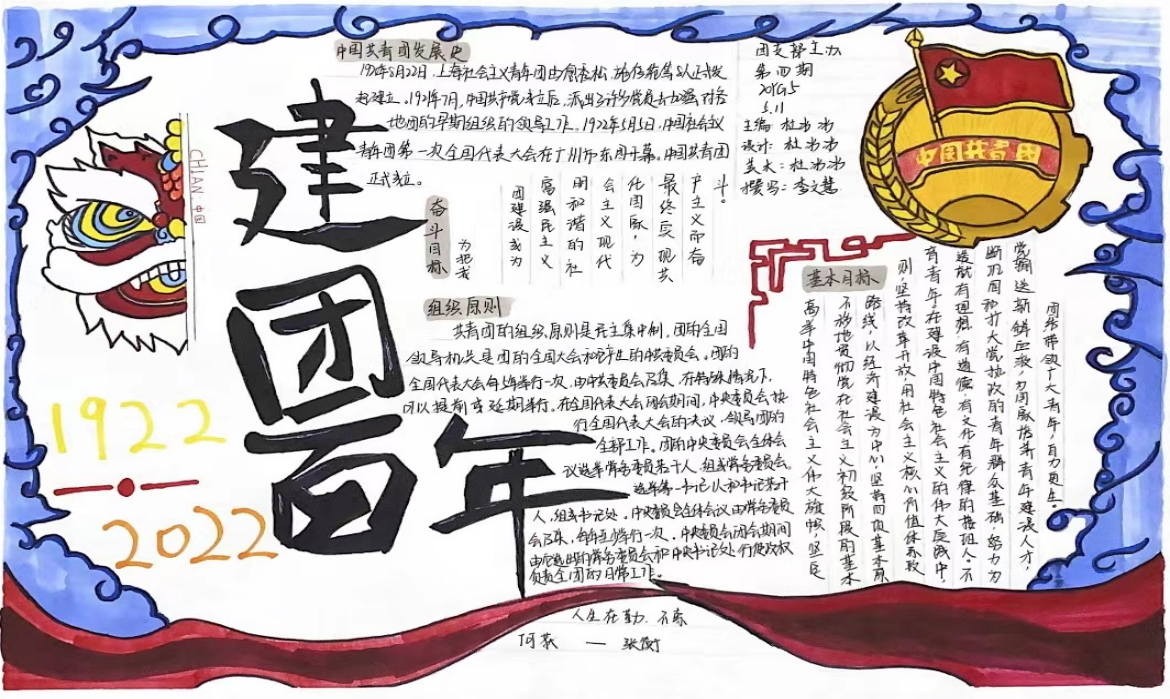 中国共青团发展史
上海社会主义青年团由俞秀松、施存统等8人正式发
起建立。1921年7月,中国共产党成立后,派出了许多党员去加强对各
地团的早期组织的领导工作。1922年5月5日,中国社会主义
青年团第一次全国代表大会在广州市东园开幕。中国共青团
正式成立。
团支部主办
第四期
5.11
主编:杜
设计:杜
美术:杜
撰写:李文慧
中国共青团
CHIAN.中国
建团百年
1922
2022
奋斗目标
为把我
团建设成为
富强民主文
明和谐的社
会主义现代
化国家,为
最终实现共
产主义而奋
斗。
组织原则
共青团的组织原则是民主集中制。团的全国
领导机关是团的全国大会和产生的中央委员会。团的
全国代表大会每5年举行一次,由中央委员会召集,在特殊情况下,
可以提前或延期举行。在全国代表大会闭会期间,中央委员会执
行全国代表大会的决议,领导团的
全部工作。团的中央委员会全体会
议选举常务委员若干人,组成常务委员会,
选举第一书记1人和书记若干
人,组成书记处。中央委员会全体会议由常务委员
会召集,每年至少举行一次。中央委员会闭会期间
由选出的常务委员会和中央书记处行使政权
负责全团的日常工作。
基本目标
高举中国特色社会主义伟大旗帜,坚定
不移地贯彻党在社会主义初级阶段的基本
路线,以经济建设为中心,坚持四项基本原
则,坚持改革开放,用社会主义核心价值体系教
育青年,在建设中国特色社会主义的伟大实践中,
造就有理想、有道德、有文化有纪律的接班人。不
断巩固和扩大党执政的青年群众基础,努力为
党输送新鲜血液,为国家培养青年建设人才,
团结带领广大青年,自力更生。
人生在勤,不索
何获
— 张衡